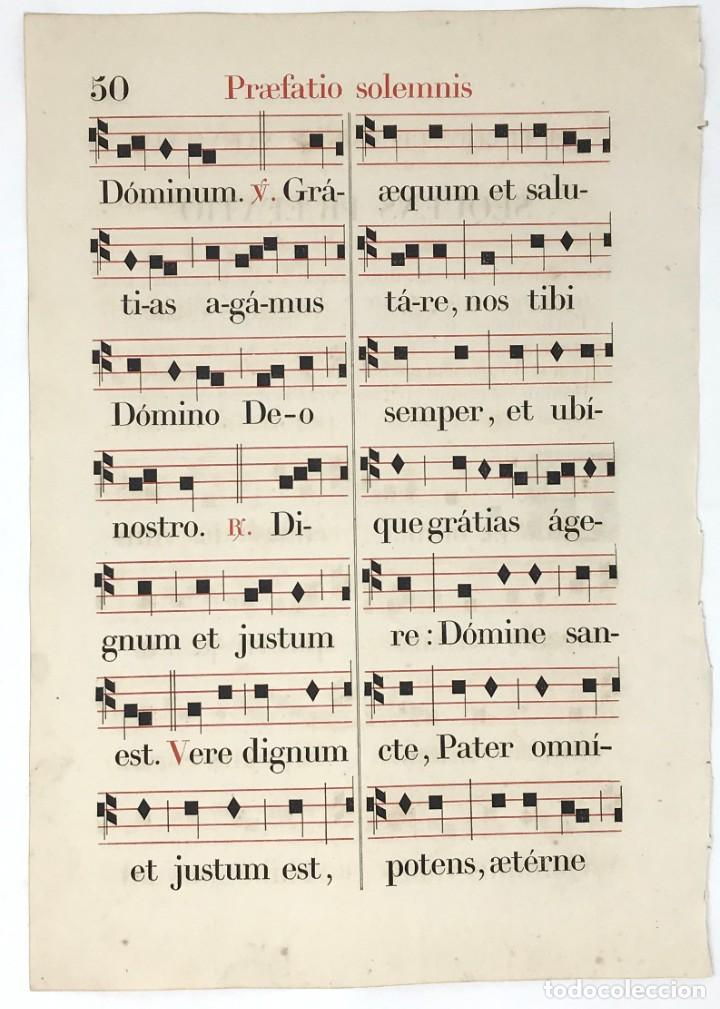 50 Præfatio solemnis
Dóminum. ℣. Grá-
ti-as a-gá-mus
Dómino De-o
nostro. ℟. Di-
gnum et justum
est. Vere dignum
et justum est,
æquum et salu-
tá-re, nos tibi
semper, et ubí-
que grátias áge-
re: Dómine san-
cte, Pater omní-
potens, ætérne
todocoleccion